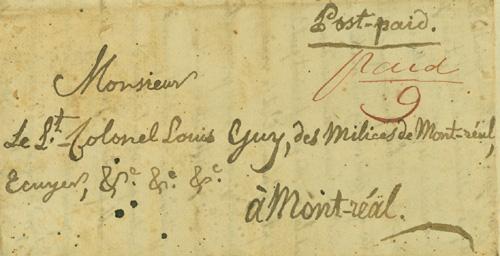 Post-paid.
paid
9
Monsieur
Le Lt. Colonel Louis Guy, des Milices de Mont-réal,
Ecuyer, &c. &c. &c.
à Mont-réal.